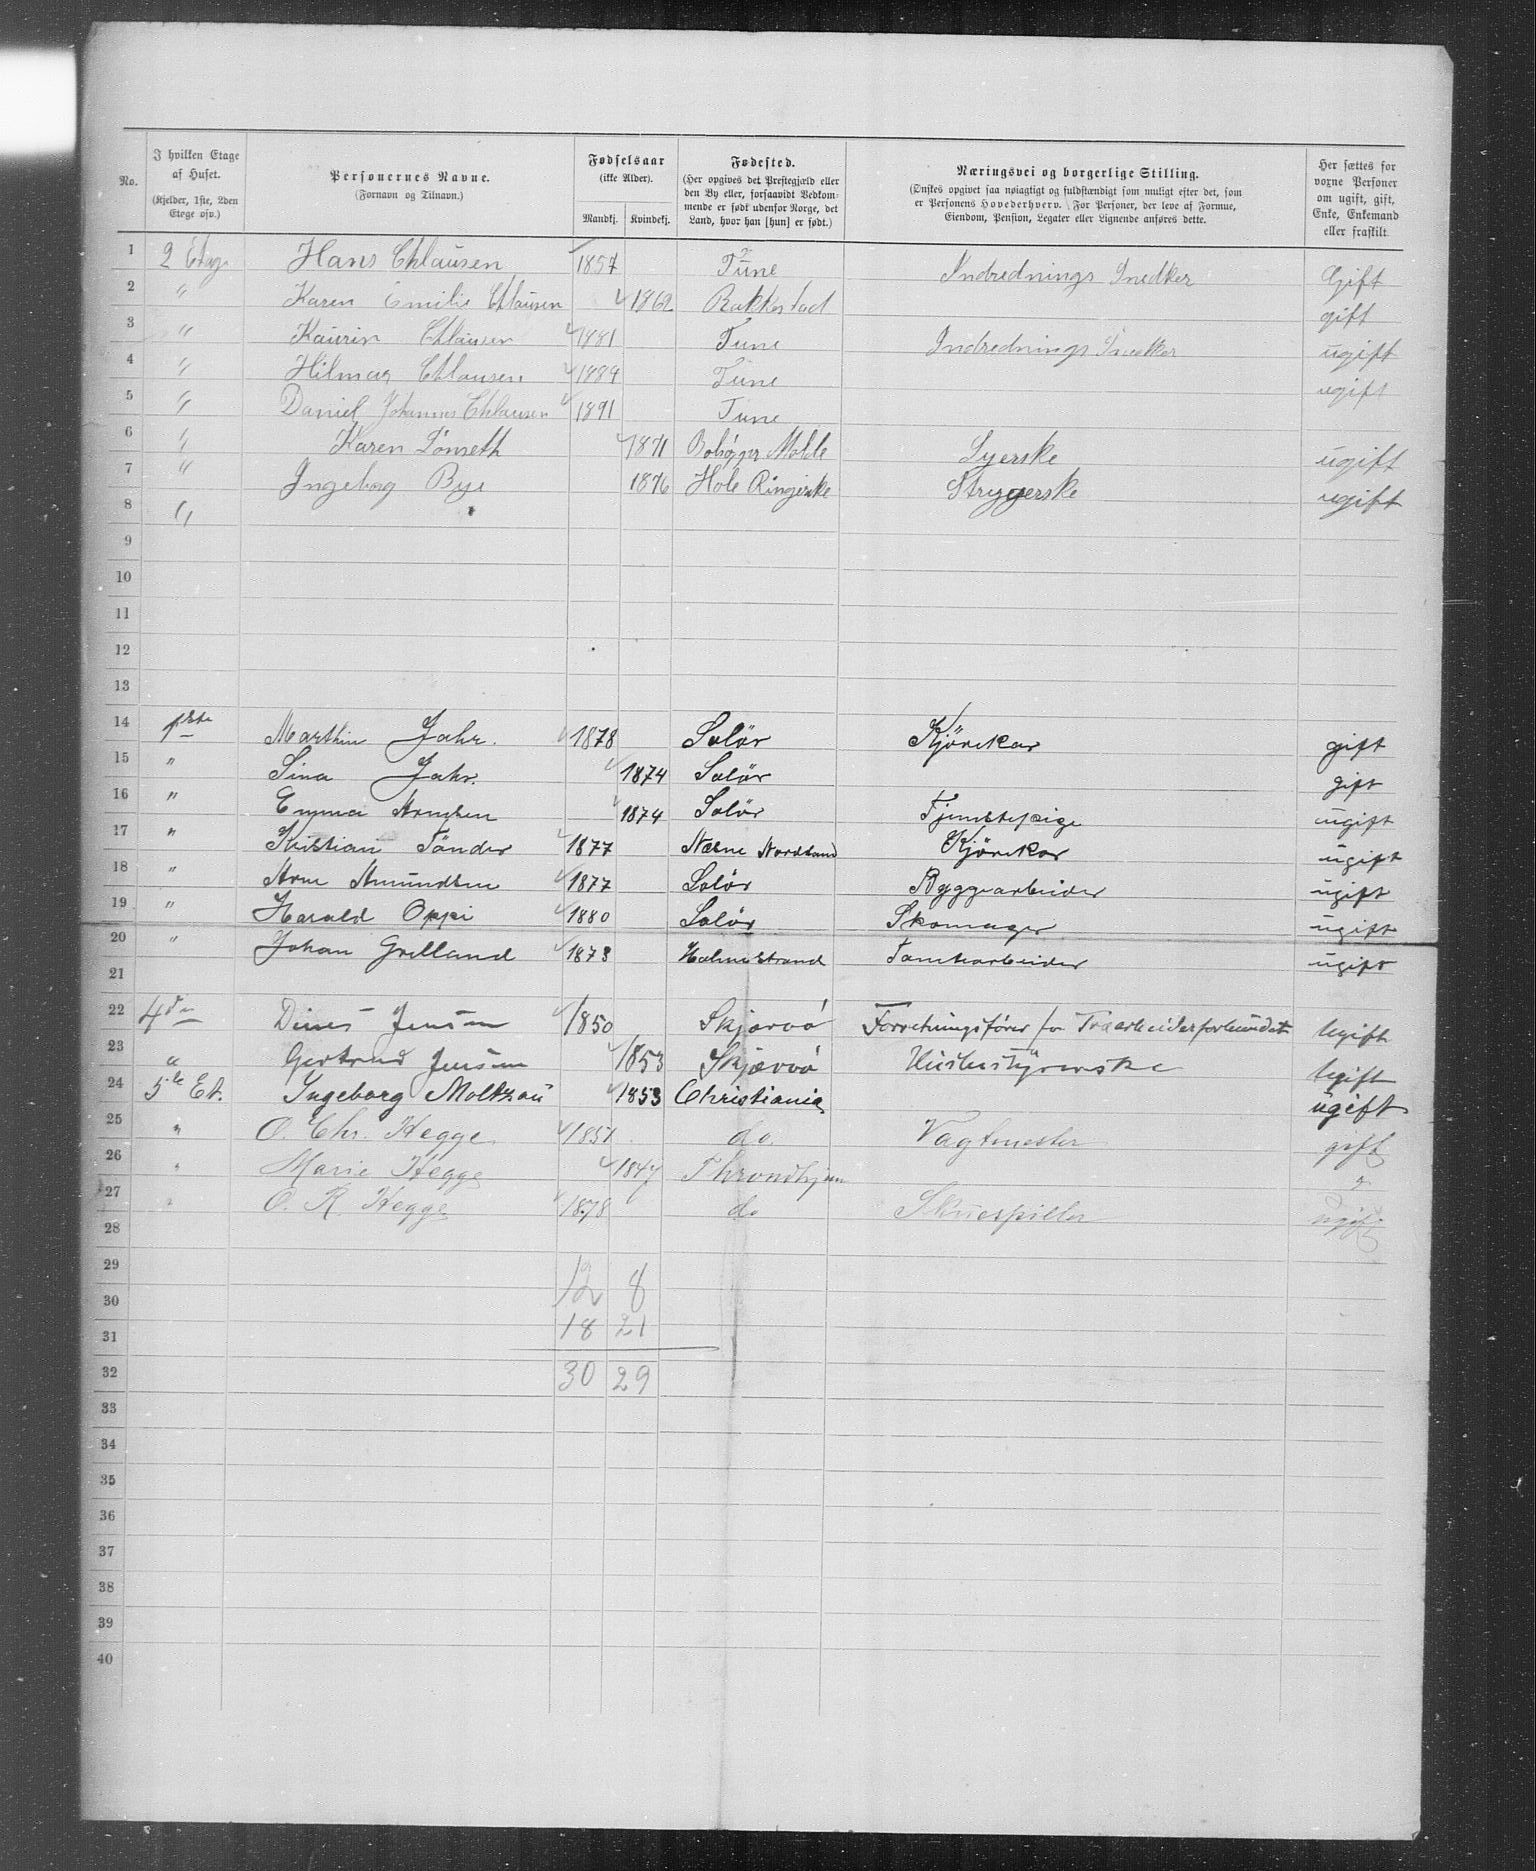 No. | I hvilken Etage af Huset. (Kjelder, 1ste, 2den Etage osv.) | Personernes Navne. (Fornavn og Tilnavn.) | Fødselsaar (ikke Alder). Mandkj. | Kvindekj. | Fødested. (Her opgives det Prestegjæld eller den By eller, forsaavidt Vedkommende er født udenfor Norge, det Land, hvor han [hun] er født.) | Næringsvei og borgerlige Stilling. (Ønskes opgivet saa nøiagtigt og fuldstændigt som muligt efter det, som er Personens Hovederhverv. For Personer, der leve af Formue, Eiendom, Pension, Legater eller Lignende anføres dette. | Her sættes for voxne Personer om ugift, gift, Enke, Enkemand eller fraskilt.
1 2 Etage Hans Chlausen 1857 Tune Indrednings Snedker Gift
2 " Karen Emilie Chlausen 1862 Rakkestad gift
3 " Kaurin Chlausen 1881 Tune Indrednings Snedker ugift
4 " Hilmar Chlausen 1889 Tune ugift
5 " Daniel Johannes Chlausen 1891 Tune
6 " Karen Tømseth 1871 Molde Syerske ugift
7 " Ingeborg Bye 1876 Hole Ringerike Strygerske ugift
8 "
9
10
11
12
13
14 1ste Marthin Jahr. 1878 Solör Kjörekar gift
15 " Sina Jahr. 1874 Solör gift
16 " Emma 1874 Solör Tjenestepige ugift
17 " Kristian Tönder 1877 Næsne Nordland Kjörekar ugift
18 " Arne Amundsen 1877 Solör Byggearbeider ugift
19 " Harald Oppi 1880 Solör Skomager ugift
20 " Johan Grelland 1873 Holmestrand Tomtearbeider ugift
21
22 4de Dines Jensen 1850 Skjærvö Forretningsförer for Træarbeiderforbundet gift
23 " Gertrud Jensen 1853 Skjærvö Husbestyrerske gift
24 5te Et. Ingeborg Moltzau 1853 Christiania ugift
25 " O. Chr. Hegge 1851 do. Vagtmester gift
26 " Marie Hegge 1847 Throndhjem "
27 " O. R. Hegge 1878 do Skuespiller ugift
28
29 12 8
30
31 18 21
32 30 29
33
34
35
36
37
38
39
40